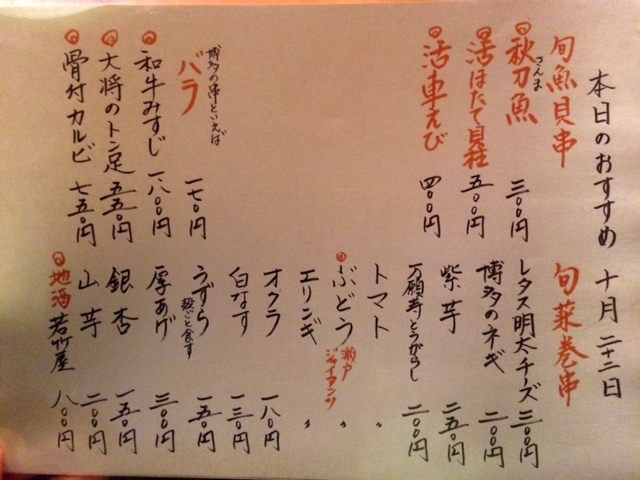 本日のおすすめ 十月二十二日
旬魚貝串
秋刀魚 さんま 三〇〇円
活ほたて貝柱 五〇〇円
活車えび 四〇〇円
博多の串といえば
バラ 一七〇円
和牛みすじ 一八〇〇円
大将のトン足 五五〇円
骨付カルビ 七五〇円
旬菜巻串
レタス明太チーズ 三〇〇円
博多のネギ 二〇〇円
紫芋 二五〇円
万願寺とうがらし 二〇〇円
トマト 〃
ぶどう 瀬戸ジャイアンツ 〃
エリンギ 〃
オクラ 一八〇円
白なす 一三〇円
うずら 殻ごと食す 一五〇円
厚あげ 三〇〇円
銀杏 一五〇円
山芋 二〇〇円
地酒 若竹屋 八〇〇円